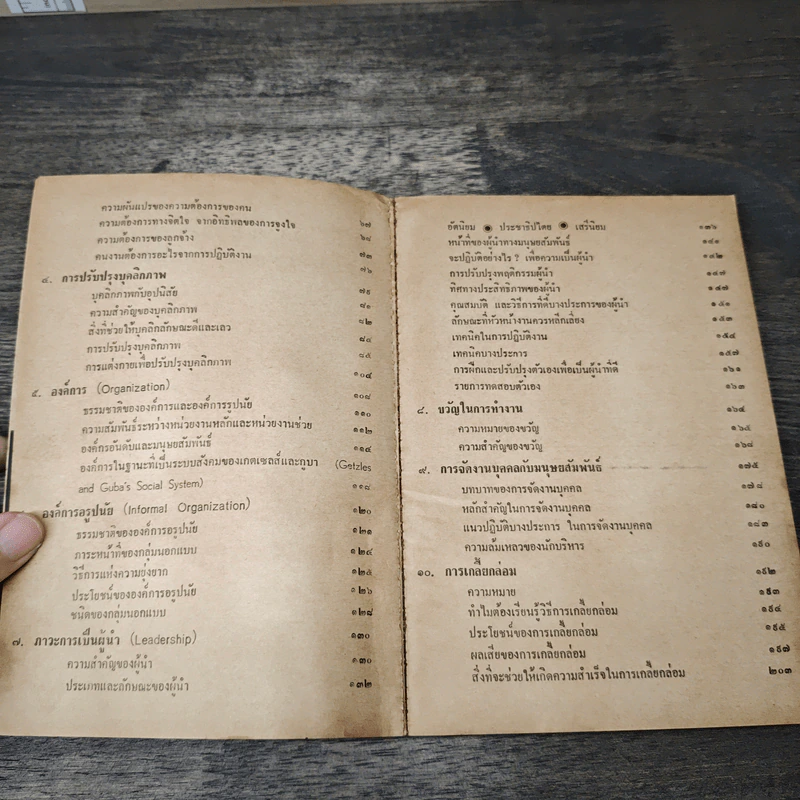 ความผันแปรของความต้องการของคน
ความต้องการทางจิตใจ จากอิทธิพลของการจูงใจ ๖๗
ความต้องการของลูกจ้าง ๖๘
คนงานต้องการอะไรจากการปฏิบัติงาน ๗๓
๔. การปรับปรุงบุคลิกภาพ ๗๖
บุคลิกภาพกับอุปนิสัย ๗๙
ความสำคัญของบุคลิกภาพ ๘๑
สิ่งที่ช่วยให้บุคลิกลักษณะดีและเลว ๘๒
การปรับปรุงบุคลิกภาพ ๘๔
การแต่งกายเพื่อปรับปรุงบุคลิกภาพ ๘๕
๕. องค์การ (Organization) ๑๐๔
ธรรมชาติขององค์การและองค์การรูปนัย ๑๐๘
ความสัมพันธ์ระหว่างหน่วยงานหลักและหน่วยงานช่วย ๑๑๐
องค์กรอันดับและมนุษยสัมพันธ์ ๑๑๒
องค์การในฐานะที่เป็นระบบสังคมของเกตเซลส์และกูบา (Getzles ๑๑๔
and Guba's Social System) ๑๑๘
องค์การอรูปนัย (Informal Organization) ๑๒๐
ธรรมชาติขององค์การอรูปนัย ๑๒๑
ภาระหน้าที่ของกลุ่มนอกแบบ ๑๒๔
วิธีการแห่งความยุ่งยาก ๑๒๕
ประโยชน์ขององค์การอรูปนัย ๑๒๖
ชนิดของกลุ่มนอกแบบ ๑๒๘
๗. ภาวะการเป็นผู้นำ (Leadership) ๑๓๐
ความสำคัญของผู้นำ ๑๓๐
ประเภทและลักษณะของผู้นำ ๑๓๒
อัตนิยม ◉ ประชาธิปไตย ◉ เสรีนิยม ๑๓๖
หน้าที่ของผู้นำทางมนุษยสัมพันธ์ ๑๔๑
จะปฏิบัติอย่างไร ? เพื่อความเป็นผู้นำ ๑๔๒
การปรับปรุงพฤติกรรมผู้นำ ๑๔๗
ทิศทางประสิทธิภาพของผู้นำ ๑๔๗
คุณสมบัติ และวิธีการที่ดีบางประการของผู้นำ ๑๕๑
ลักษณะที่หัวหน้างานควรหลีกเลี่ยง ๑๕๓
เทคนิคในการปฏิบัติงาน ๑๕๔
เทคนิคบางประการ ๑๕๗
การฝึกและปรับปรุงตัวเองเพื่อเป็นผู้นำที่ดี ๑๖๑
รายการทดสอบตัวเอง ๑๖๓
๘. ขวัญในการทำงาน ๑๖๔
ความหมายของขวัญ ๑๖๕
ความสำคัญของขวัญ ๑๖๘
๙. การจัดงานบุคคลกับมนุษยสัมพันธ์ ๑๗๕
บทบาทของการจัดงานบุคคล ๑๗๘
หลักสำคัญในการจัดงานบุคคล ๑๘๐
แนวปฏิบัติบางประการ ในการจัดงานบุคคล ๑๘๓
ความล้มเหลวของนักบริหาร ๑๙๐
๑๐. การเกลี้ยกล่อม ๑๙๒
ความหมาย ๑๙๓
ทำไมต้องเรียนรู้วิธีการเกลี้ยกล่อม ๑๙๔
ประโยชน์ของการเกลี้ยกล่อม ๑๙๕
ผลเสียของการเกลี้ยกล่อม ๑๙๗
สิ่งที่จะช่วยให้เกิดความสำเร็จในการเกลี้ยกล่อม ๒๐๓